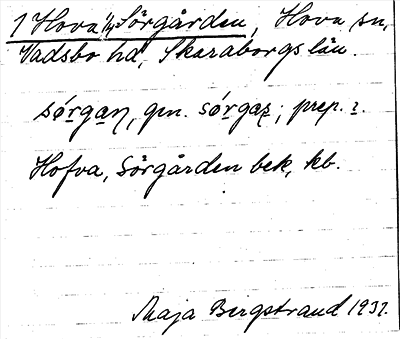 1 Hova 1/4 Sörgården, Hova sn,
Vadsbo hd, Skaraborgs län.
sórgaṇ, gen. sórgaṣ; prep. ɪ.
Hofva, Sörgården bek, kb.
Maja Bergstrand 1937.